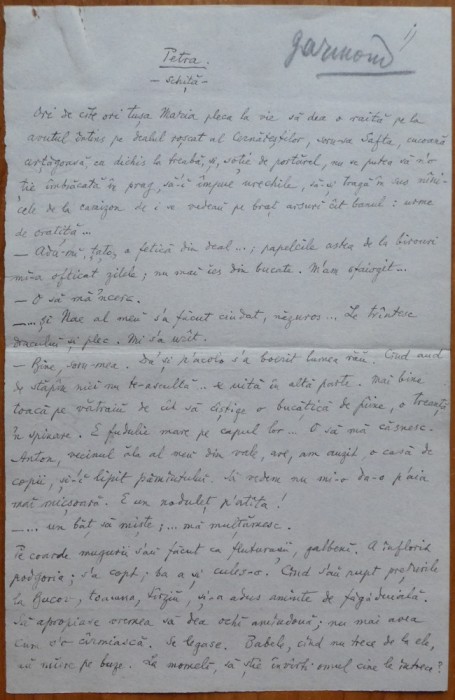 garmond
Petra.
— schiță —
Ori de cîte ori tușa Maria pleca la vie să dea o raită pe la
avutul întins pe dealul roșcat al soru-sa Safta, cucoană
arțăgoasă ca dichis la treabă, și, soție de portărel, nu se putea să n'o
ție îmbrăcată în prag, să-i împuie urechile, să-și tragă în sus mîni-
cele de camizon de i se vedeau pe braț arsuri cît banul: urme
de
— Adu-mi, țațo, o fetică din deal...; papelcile astea de la birouri
mi-a ofticat zilele; nu mai ies din bucate. M'am
— O să mă încerc.
— ... Și Nae al meu s'a făcut ciudat, năzuros... Le trîntesc
dracului și plec. Mi s'a urît.
— Bine, soru-mea. Da' și p'acolo s'a boierit lumea rău. Cînd aud
de stăpîn nici nu te-ascultă... se uită în altă parte. Mai bine
toacă pe vătraiu de cît să cîștige o bucățică de pîine, o treanță
în spinare. E fudulie mare pe capul lor... O să mă căznesc.
Anton, vecinul ăla al meu din vale, are, am auzit, o casă de
copii, și-i lipit pămîntului. Să vedem nu mi-o da-o p'aia
mai micșoară. E un noduleț p'atîta!
— ... un băț să miște; ... mă mulțămesc.
Pe coarde mugurii s'au făcut ca fluturașii, galbeni. A înflorit
podgoria; s'a copt; ba a și cules-o. Cînd s'au rupt prețurile
la Bucov, toamna, tîrziu, și-a adus aminte de făgăduială.
Să apropiase vremea să dea ochi amîndouă; nu mai avea
cum s'o cîrmească. Se legase. Babele, cînd nu trece de la ele,
să mușc pe buze. La momele, să știe învîrti omul cine le întrece?